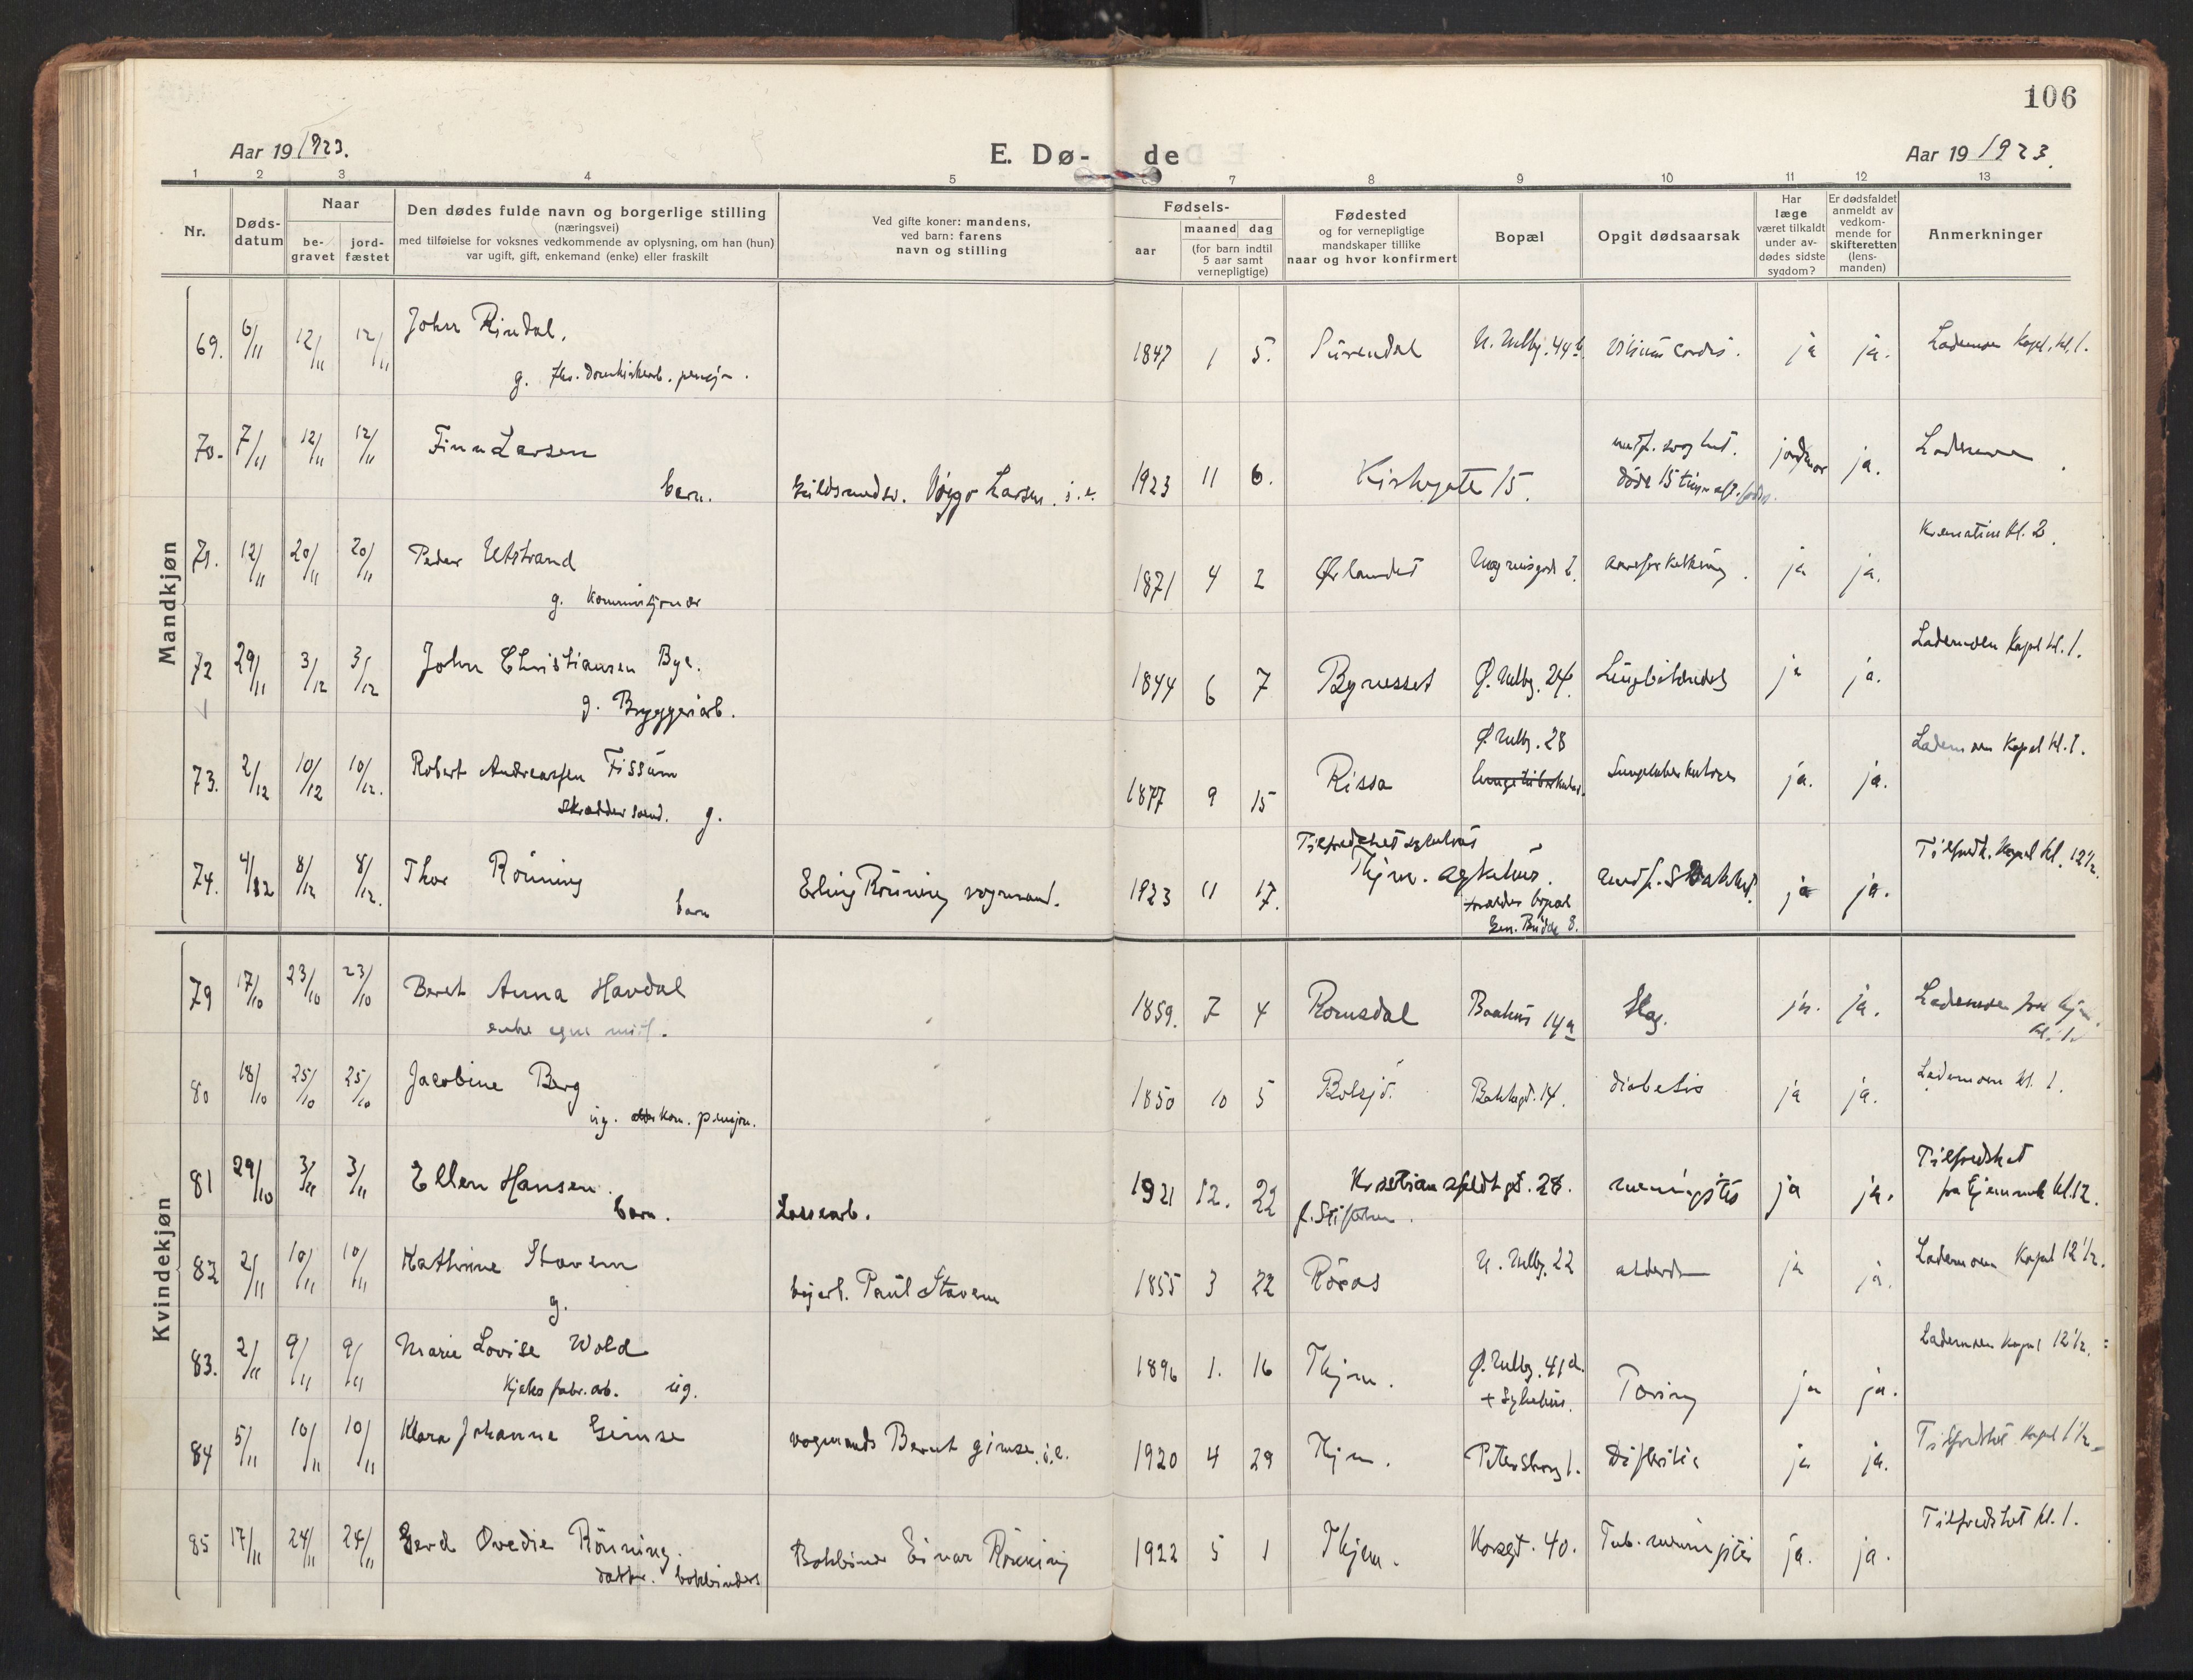 106
Aar 19 1923.
E. Dø-
de
Aar 19 1923.
1 2 3 4 5 7 8 9 10 11 12 13
Nr.
Døds-
datum
Naar
be-
gravet
jord-
fæstet
Den dødes fulde navn og borgerlige stilling
(næringsvei)
med tilføielse for voksnes vedkommende av oplysning, om han (hun)
var ugift, gift, enkemand (enke) eller fraskilt
Ved gifte koner: mandens,
ved barn: farens
navn og stilling
Fødsels-
aar
maaned dag
(for barn indtil
5 aar samt
vernepligtige)
Fødested
og for vernepligtige
mandskaper tillike
naar og hvor konfirmert
Bopæl
Opgit dødsaarsak
Har
læge
været tilkaldt
under av-
dødes sidste
sygdom?
Er dødsfaldet
anmeldt av
vedkom-
mende for
skifteretten
(lens-
manden)
Anmerkninger
Mandkjøn
69. 6/11 12/11 12/11 John Rindal. 1847 1 5. Surendal vitium cordis. ja ja. Lademoen Kapel. kl. 1.
g.
70. 7/11 12/11 12/11 Finn Larsen
barn. Viggo Larsen 1923 11 6. Kirkegate 15. jordmor ja. Lademoen
døde 15 timer
71. 12/11 20/11 20/11 Peder Utstrand 1871 4 2 Ørlandet aareforkalkning. ja ja. Kremation kl. 2.
g. kommisjonær
72 29/11 3/12 3/12 John Christiansen Bye. 1844 6 7 Bynesset Ø. Møllbg. 24 Lungebetændels ja ja. Lademoen Kapel kl. 1.
g. Bryggeriarb.
73. 2/12 10/12 10/12. Robert Andreassen Fissum 1877 9 15 Rissa Ø. Møllbg. 28 Lungetuberkulose ja. ja. Lademoen Kapel kl. 1.
skræddersvend. g.
74. 4/12 8/12 8/12. Thor Rönning Erling Rönning vognmand. 1923 11 17. Tilfredshet sykehus ja ja. Tilfredsh. Kapel kl. 12½.
barn Thjm. sykehus.
Kvindekjøn
79 17/10 23/10 23/10 Beret Anna Havdal 1859. 7 4 Romsdal Bakhus 14a Slag. ja. ja. Lademoen
enke
80 18/10 25/10 25/10 Jacobine Berg 1850 10 5 Bolsø Bakkegt. 14. diabetis ja ja. Lademoen kl. 1.
ug. pensjon.
81 29/10 3/11 3/11 Ellen Hansen. 1921 12. 22 Kristiansfeldtgt. 28. meningitis ja ja. Tilfredshet
barn. Lossearb. fra hjemmet kl. 12.
82 2/11 10/11 10/11 Kathrine Stavem Paul Stavem 1855 3 22 Röros 22 alderd. ja ja. Lademoen Kapel 12½.
g.
83. 2/11 9/11 9/11 Marie Lovise Wold 1896 1. 16 Thjm. Ø. Møllbg. 41d. Tæring ja ja. Lademoen Kapel 12½.
Kjeksfabr.arb. ug. + Sykehus.
84 5/11 10/11 10/11 Klara Johanne Gimse vognmands Bernt Gimse. i.e. 1920 4 29 Thjm. Petersborg 1. Difteritis ja ja. Tilfredshet Kapel 1½
85 17/11 24/11 24/11 Gerd Ovedie Rönning. Bokbinder Einar Rönning 1922 5 1 Thjem. Korsgt. 40. Tub. meningitis ja. ja. Tilfredshet kl. 1.
datter. bokbinders